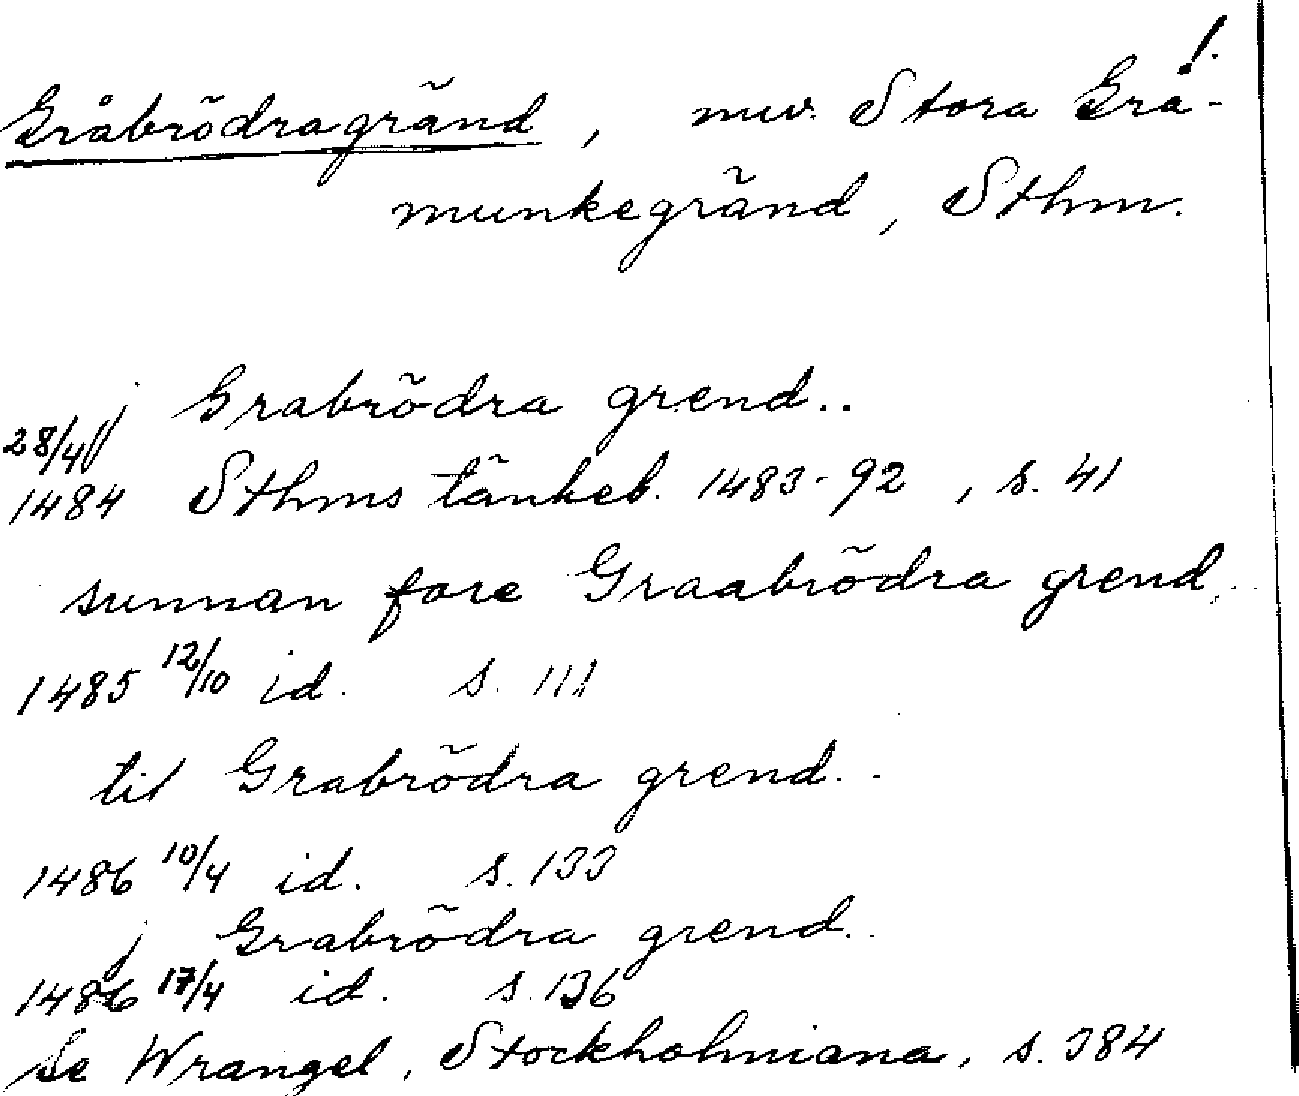 !
Gråbrödragränd, nuv. Stora Grå-
munkegränd, Sthm.
j Grabrödra grend..
28/4
1484 Sthms tänkeb. 1483-92, s. 41
sunnan fore Graabrödra grend..
1485 12/10 id. s. 111
til Grabrödra grend..
1486 10/4 id. s. 133
j Grabrödra grend..
1486 17/4 id. s. 136
Se Wrangel, Stockholmiana, s. 384